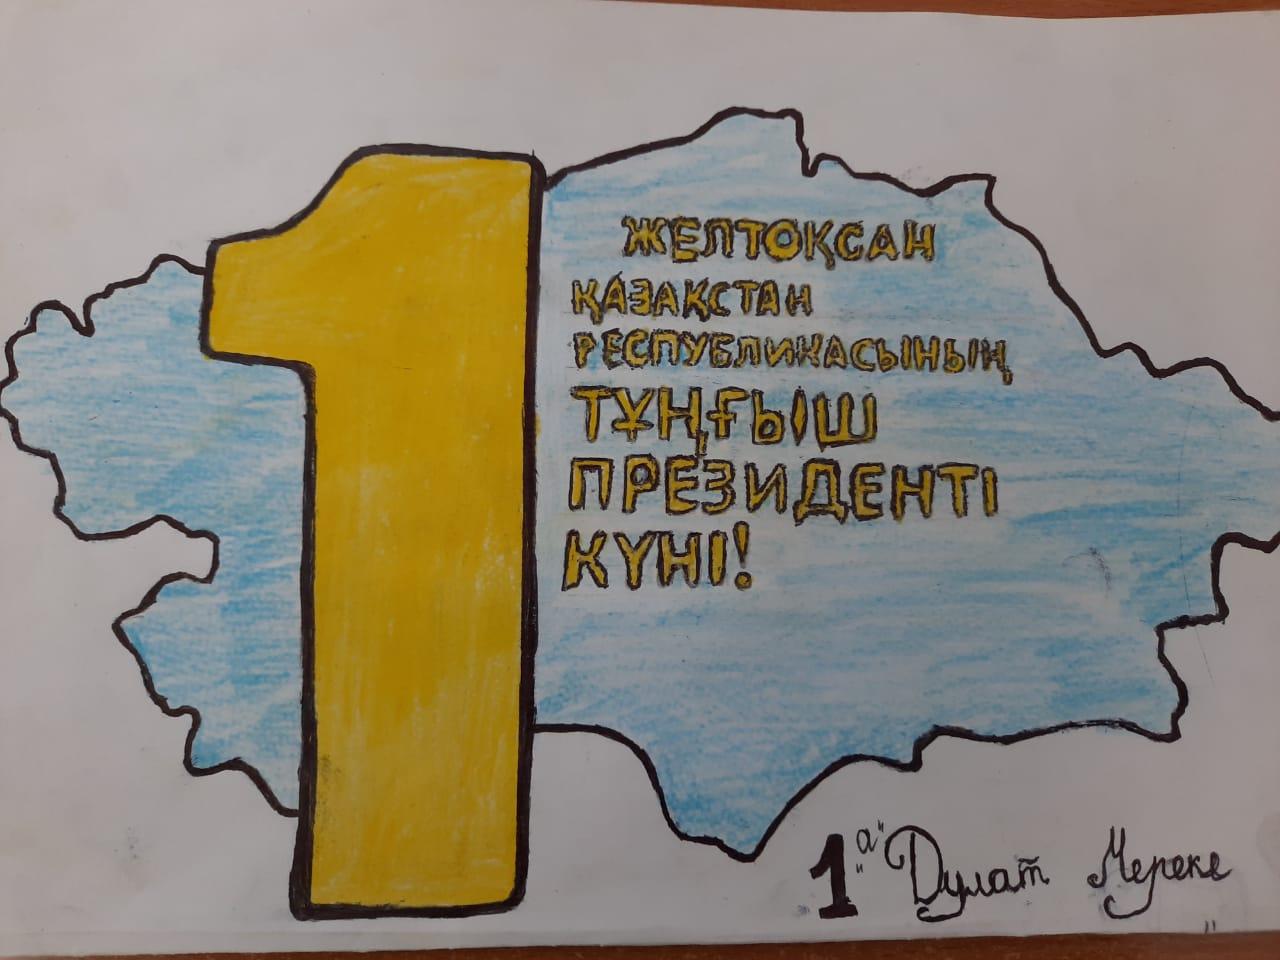 1
ЖЕЛТОҚСАН
ҚАЗАҚСТАН
РЕСПУБЛИКАСЫНЫҢ
ТҰҢҒЫШ
ПРЕЗИДЕНТІ
КҮНІ!
1 "а" Дулат Мереке